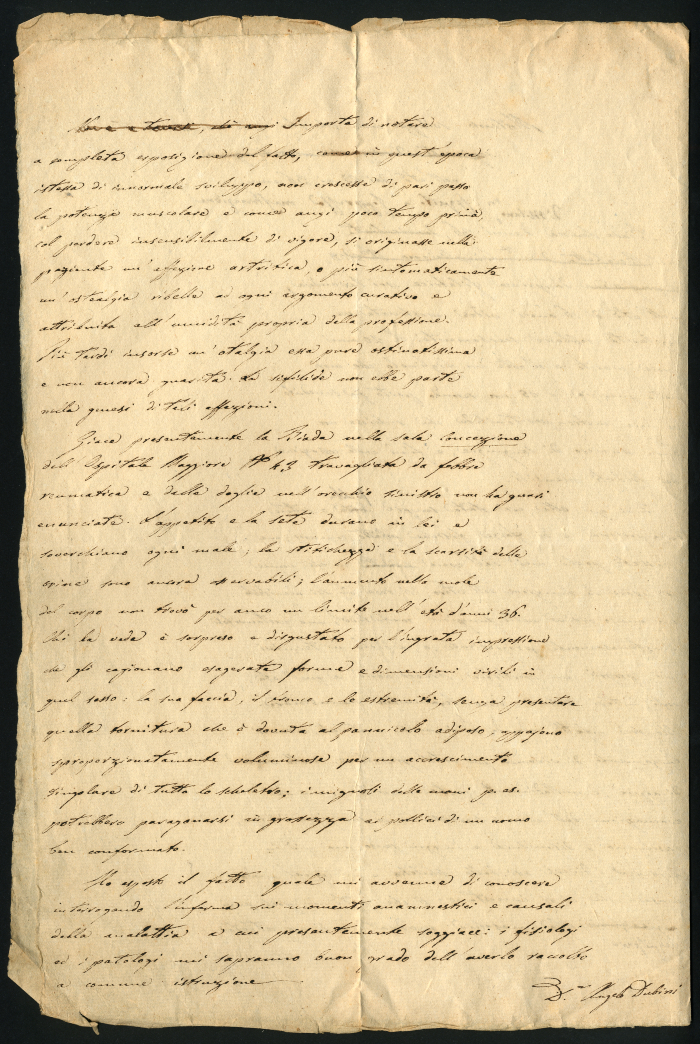 Importa di notare
a completa esposizione del fatto, come in quest'epoca
istessa di innormale sviluppo, non crescesse di pari passo
la potenza muscolare e come anzi poco tempo prima,
col perdere insensibilmente di vigore, si originasse nella
paziente un'affezione artritica, o più sintomaticamente
un'ostealgia ribelle ad ogni argomento curativo e
attribuita all'umidità propria della professione.
Più tardi insorse un'otalgia essa pure ostinatissima
e non ancora guarita. La sifilide non ebbe parte
nella genesi di tali affezioni.
Giace presentemente la nella sala Concezione
dell'Ospitale Maggiore N.° 43 travagliata da febbre
reumatica e dalle doglie nell'orecchio sinistro non ha guari
enunciate. L'appetito e la sete durano in lei e
soverchiano ogni male; la stitichezza e la scarsità delle
orine sono ancora osservabili; l'aumento nella mole
del corpo non trovò per anco un limite nell'età d'anni 36.
Chi la vede è sorpreso e disgustato per l'ingrata impressione
che gli cagionano esagerate forme e dimensioni virili in
quel sesso: la sua faccia, il tronco e le estremità, senza presentare
quella tornitura che è dovuta al pannicolo adiposo, appajono
sproporzionatamente voluminose per un accrescimento
singolare di tutto lo scheletro; i mignoli delle mani p. es.
potrebbero paragonarsi in grossezza ai pollici di un uomo
ben conformato.
Ho esposto il fatto quale mi avvenne di conoscere
interrogando l'inferma sui momenti anamnestici e causali
della malattia a cui presentemente soggiace: i fisiologi
ed i patologi mi sapranno buon grado dell'averlo raccolto
a comune istruzione
D.r Angelo Dubini